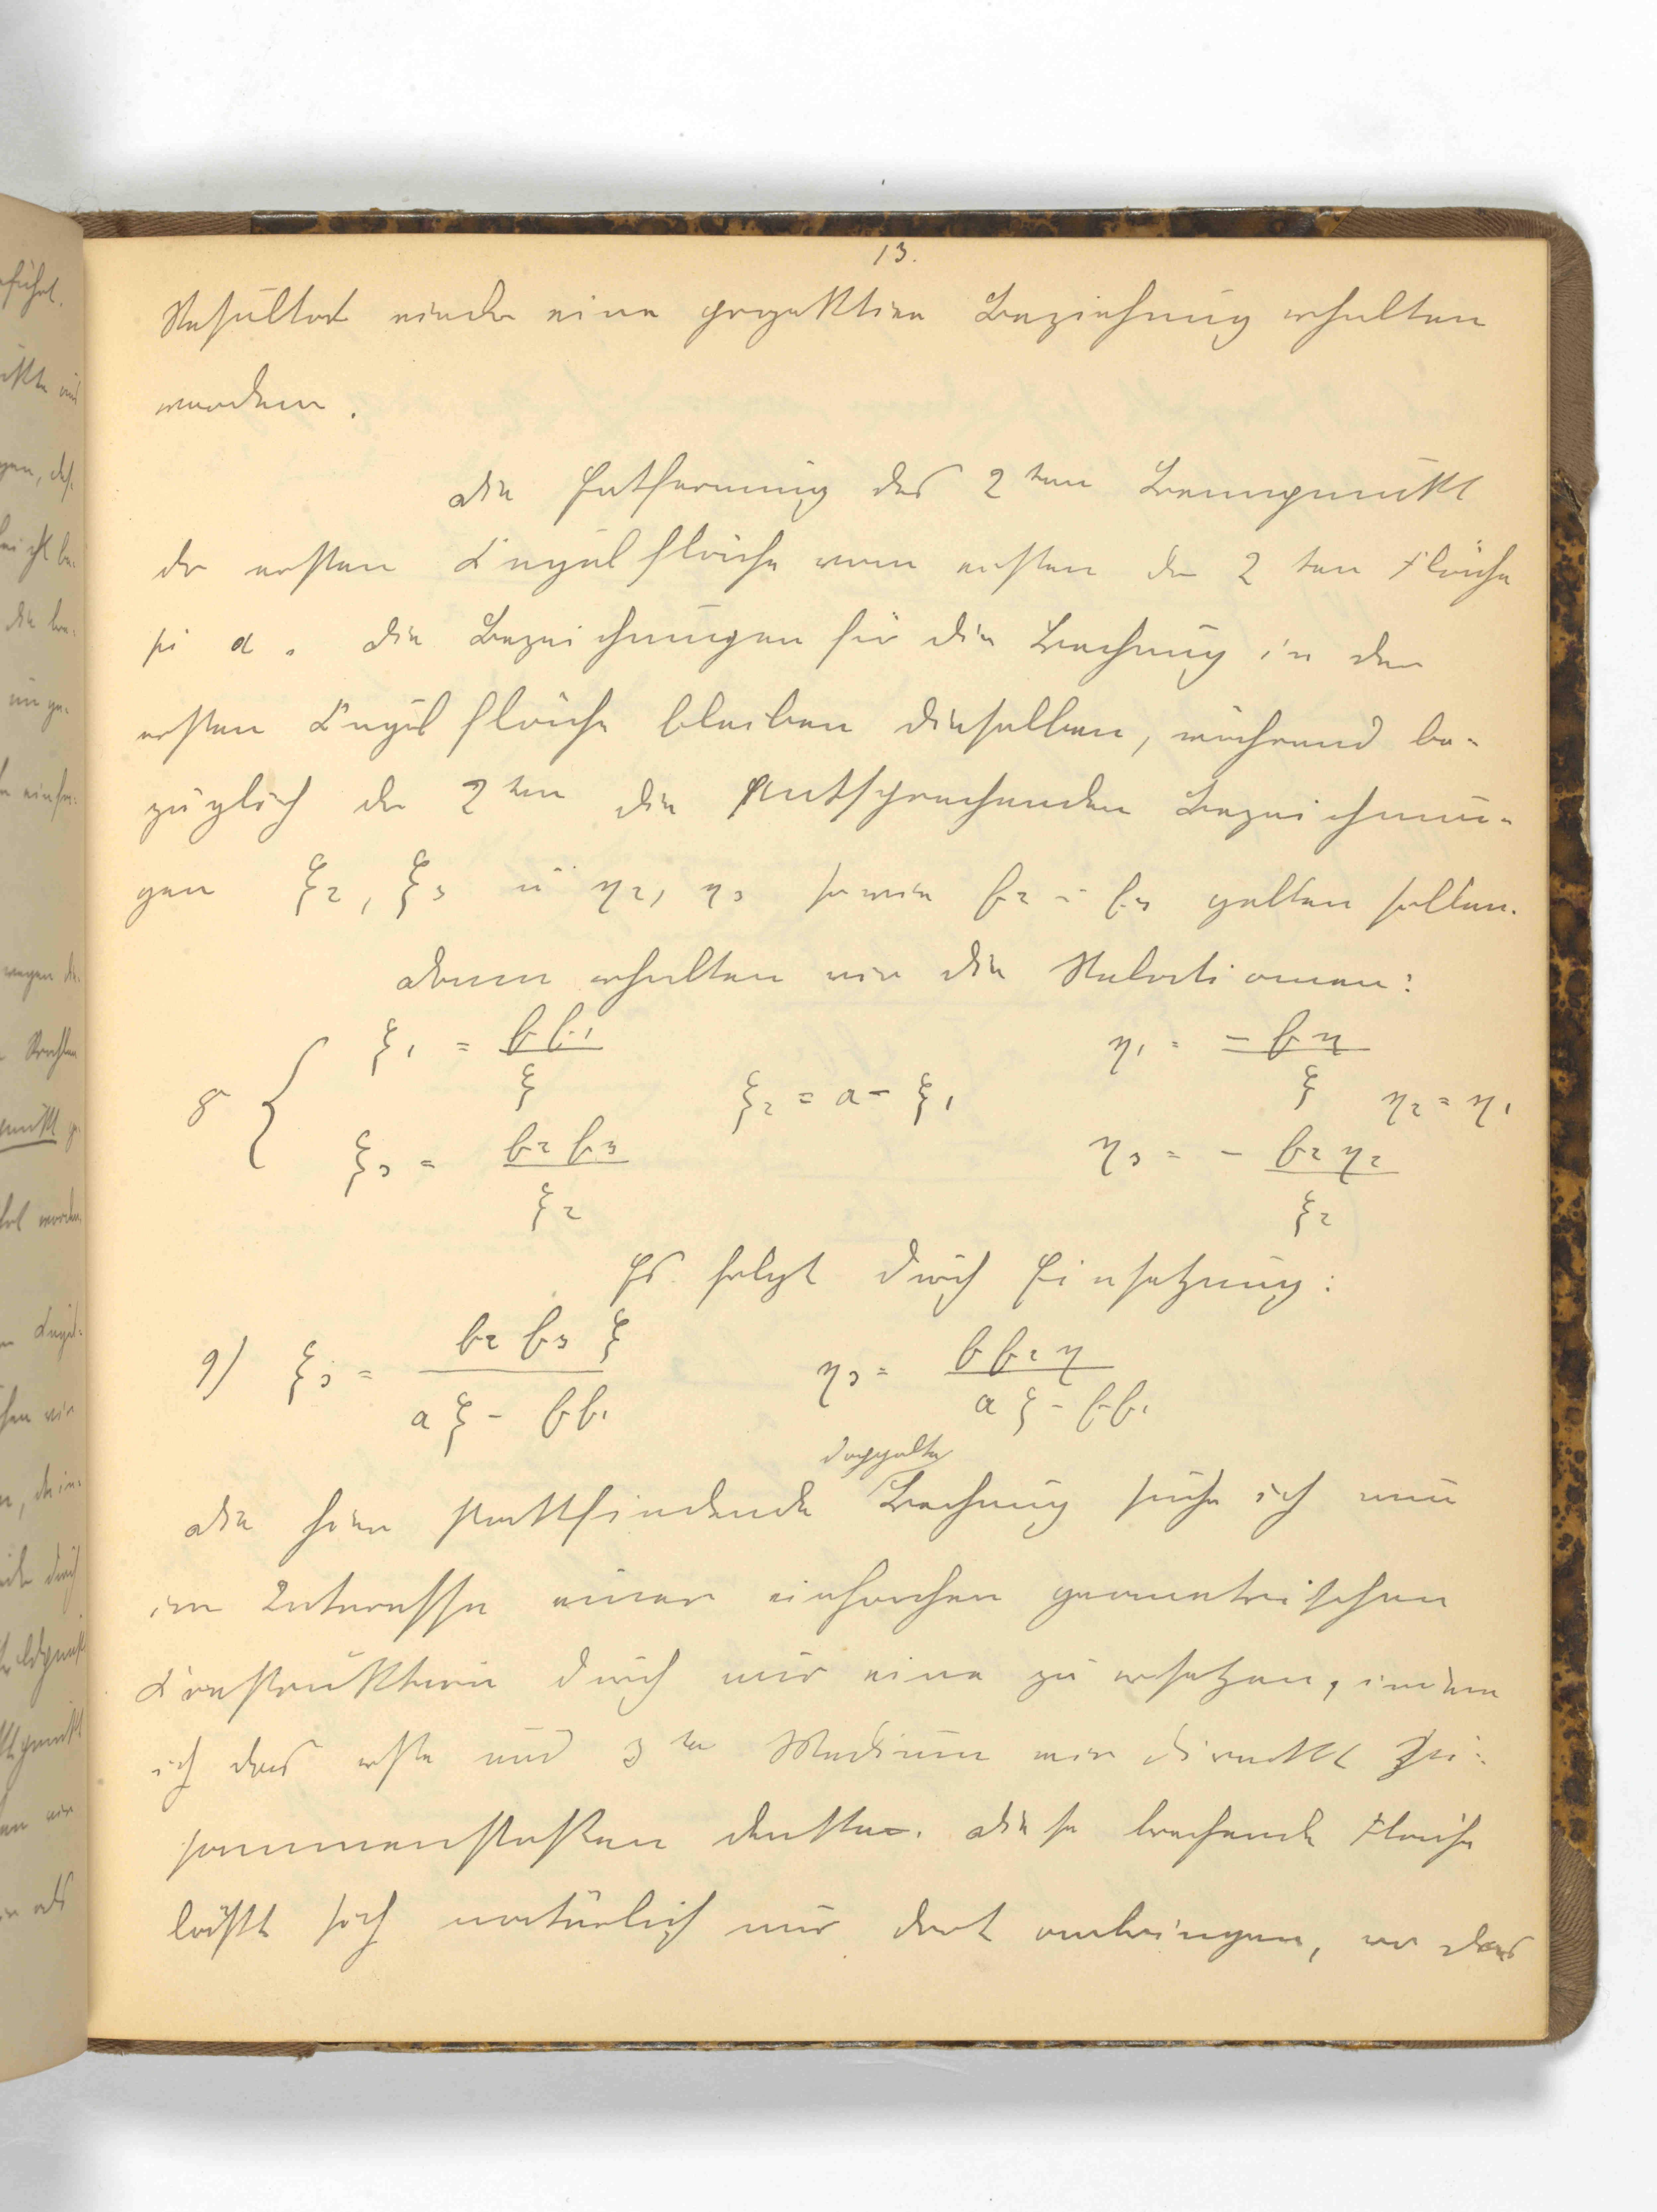 13.
Resultat wieder eine projektive Beziehung erhalten
werden.
Die Entfernung des 2ten Brennpunkt
der ersten Kugelfläche vom ersten der 2ten Fläche
sei a. Die Bezeichnungen für die Brechung in der
ersten Kugelfläche bleiben dieselben, während be-
züglich der 2ten die entsprechenden Bezeichnun-
gen ξ2, ξ3 u η2, η3 sowie f2 u f3 gelten sollen.
Dann erhalten wir die Relationen:
8 { ξ1 = f f1 / ξ   ξ2 = a - ξ1   η1 = - f η / ξ   η2 = η1
ξ3 = f2 f3 / ξ2   η3 = - f2 η2 / ξ2
Es folgt durch Einsetzung:
9) ξ3 = f2 f3 ξ / (a ξ - f f1)   η3 = f f2 η / (a ξ - f f1)
doppelte
Die hier stattfindende Brechung suche ich nun
im Interesse einer einfachen geometrischen
Konstruktion durch nur eine zu ersetzen, indem
ich das erste und 3te Medium mir direckt zu-
sammenstoßen denke. Diese brechende Fläche
läßt sich natürlich nur dort anbringen, wo das
führt.